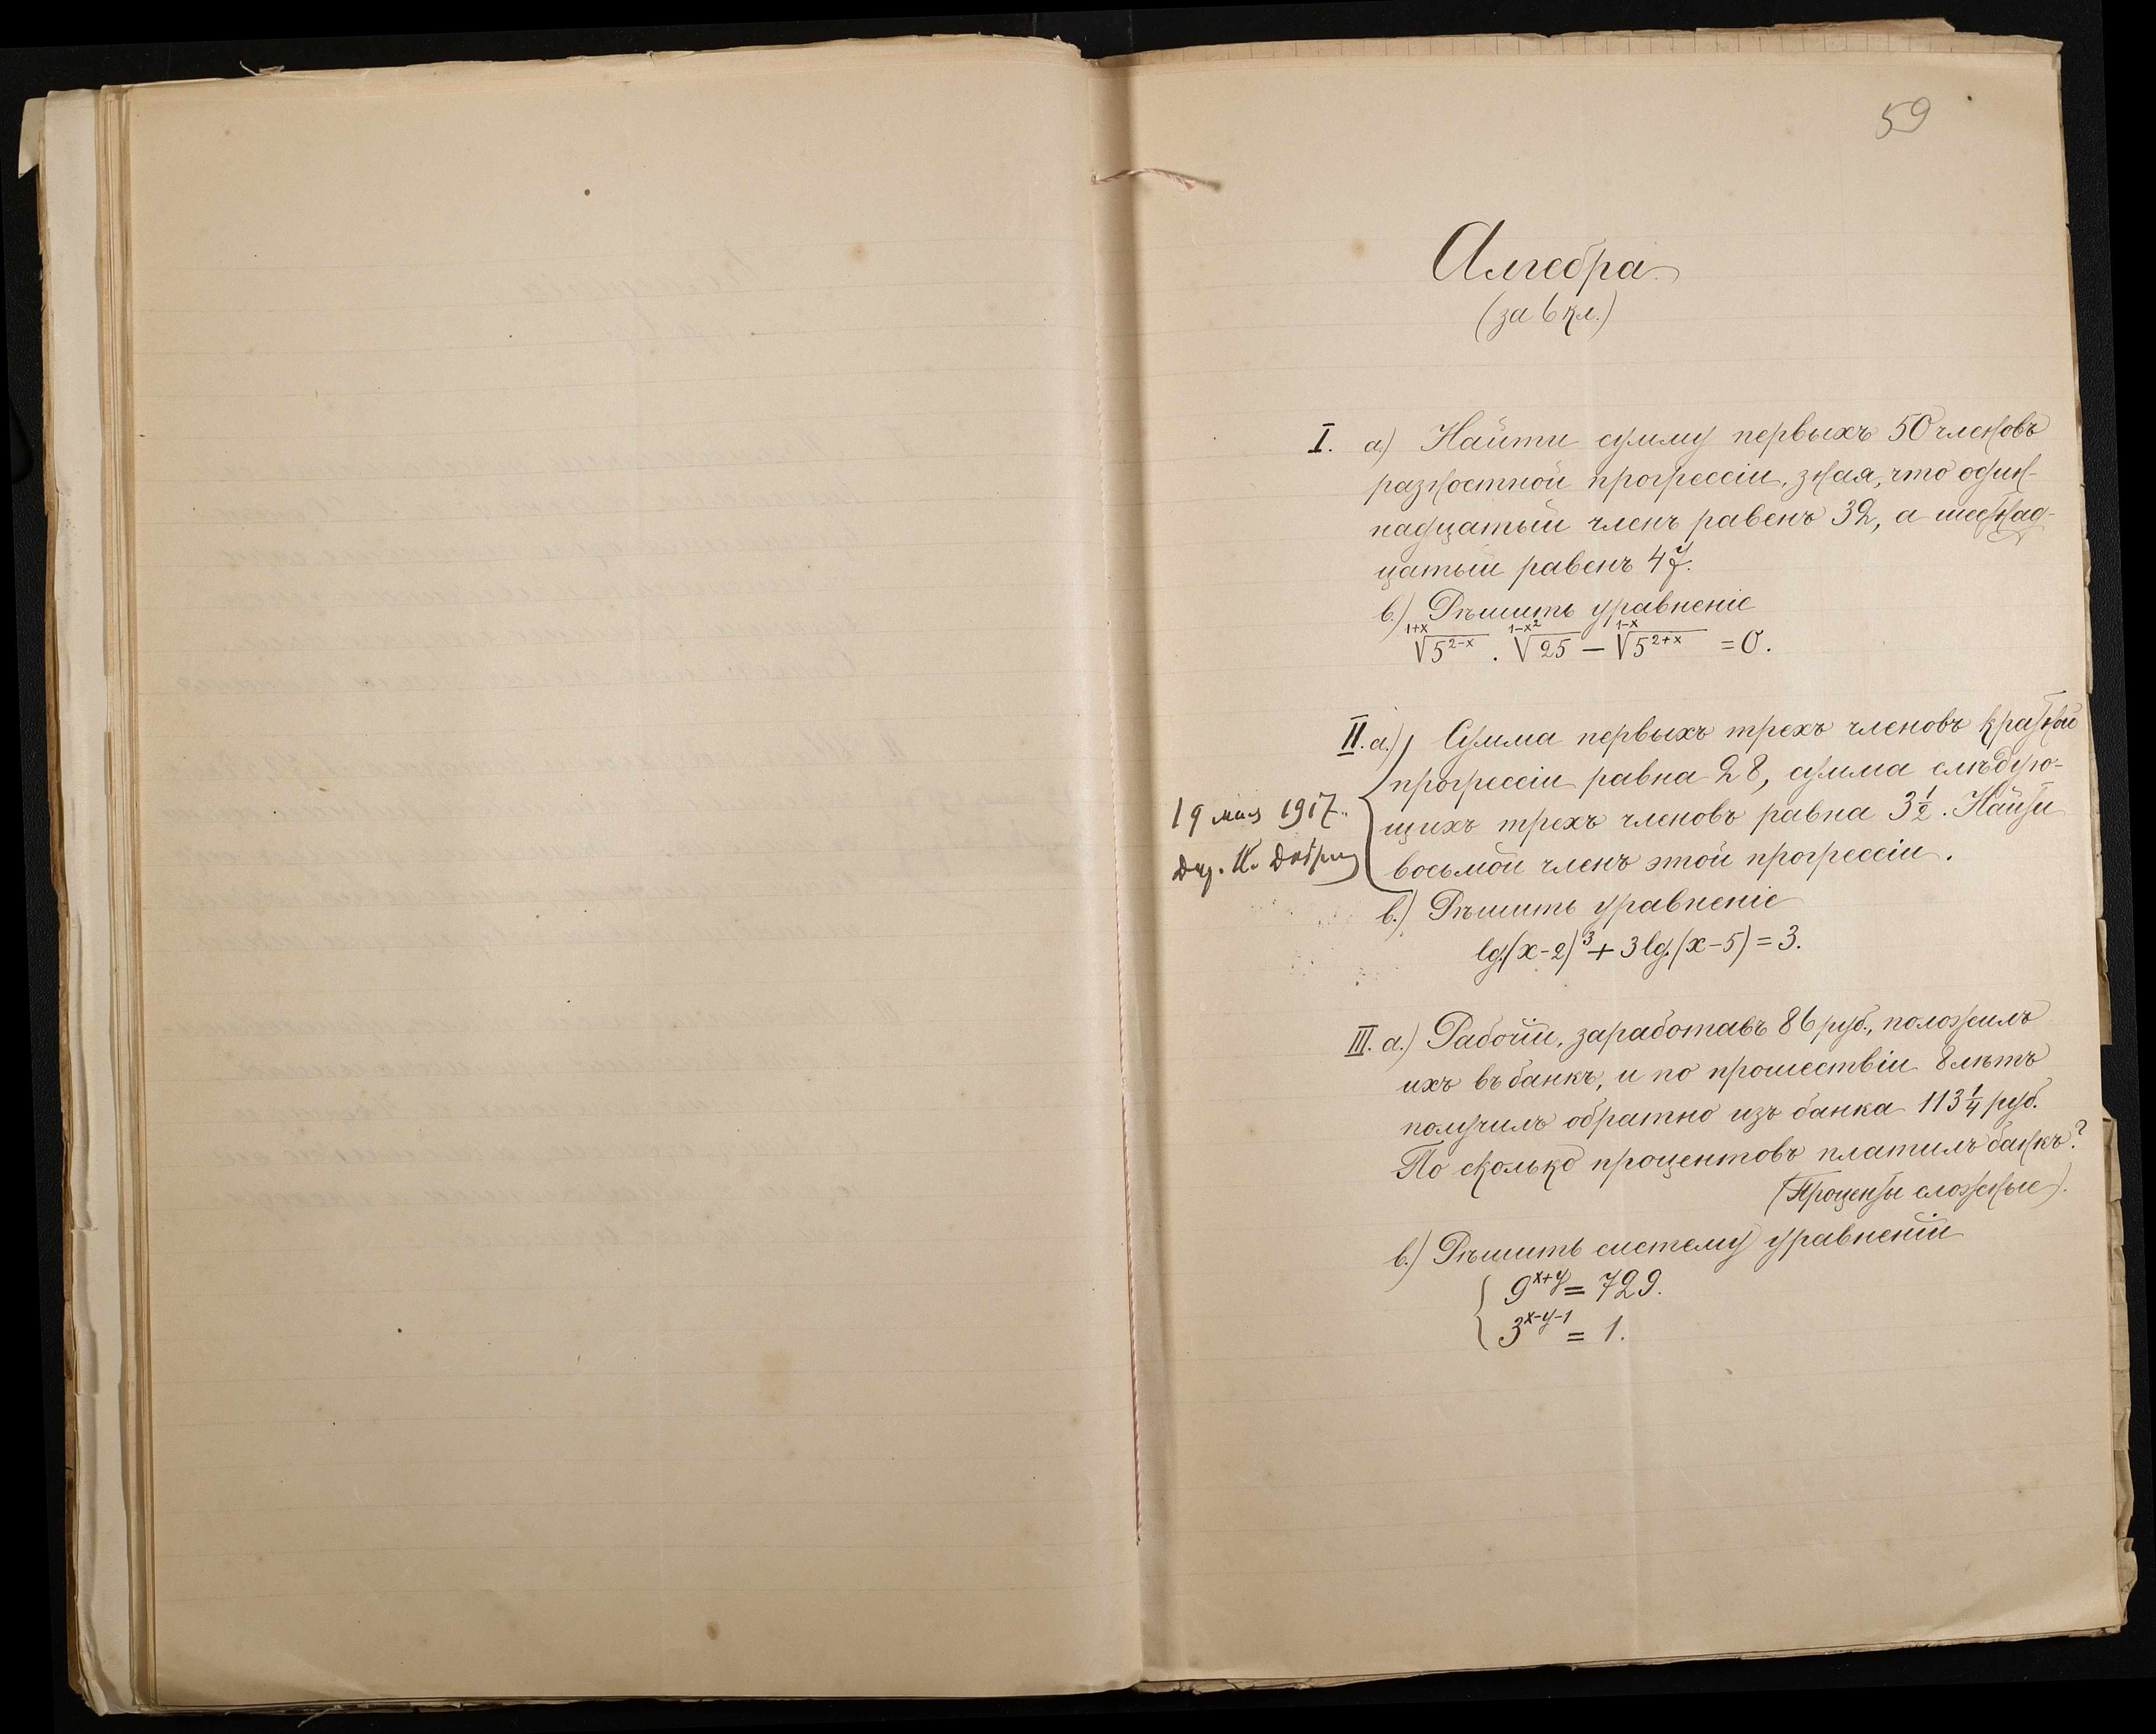 59
Алгебра.
(за 6 кл.)
I. а.) Найти сумму первыхъ 50 членовъ
разностной прогрессіи, зная, что один-
надцатый членъ равенъ 32, а шестнад-
цатый равенъ 47.
b.) Рѣшить уравненіе
\sqrt[1+x]{5^{2-x}} . \sqrt[1-x^2]{25} — \sqrt[1-x]{5^{2+x}} = 0.
II. а.) Сумма первыхъ трехъ членовъ кратной
прогрессіи равна 28, сумма слѣдую-
щихъ трехъ членовъ равна 3 1/2. Найти
восьмой членъ этой прогрессіи.
19 мая 1917.
Дир. К.
b.) Рѣшить уравненіе
lg.(x-2)^3 + 3 lg.(x-5) = 3.
III. а.) Рабочій, заработавъ 86 руб., положилъ
ихъ въ банкъ, и по прошествіи 8 лѣтъ
получилъ обратно изъ банка 113 1/4 руб.
По сколько процентовъ платилъ банкъ?
(Проценты сложные).
b.) Рѣшить систему уравненій
{ 9^{x+y} = 729.
3^{x-y-1} = 1.